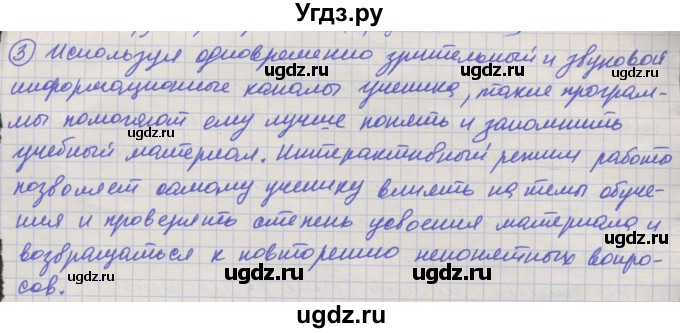 Угдз.ру
③ Используя одновременно зрительный и звуковой
информационные каналы ученика, такие програм-
мы помогают ему лучше понять и запомнить
учебный материал. Интерактивный режим работы
позволяет самому ученику влиять на темы обуче-
ния и проверять степень усвоения материала и
возвращаться к повторению непонятных вопро-
сов.
ugdz.ru ugdz.ru ugdz.ru
ugdz.ru ugdz.ru
ugdz.ru ugdz.ru ugdz.ru
ugdz.ru ugdz.ru
ugdz.ru ugdz.ru ugdz.ru